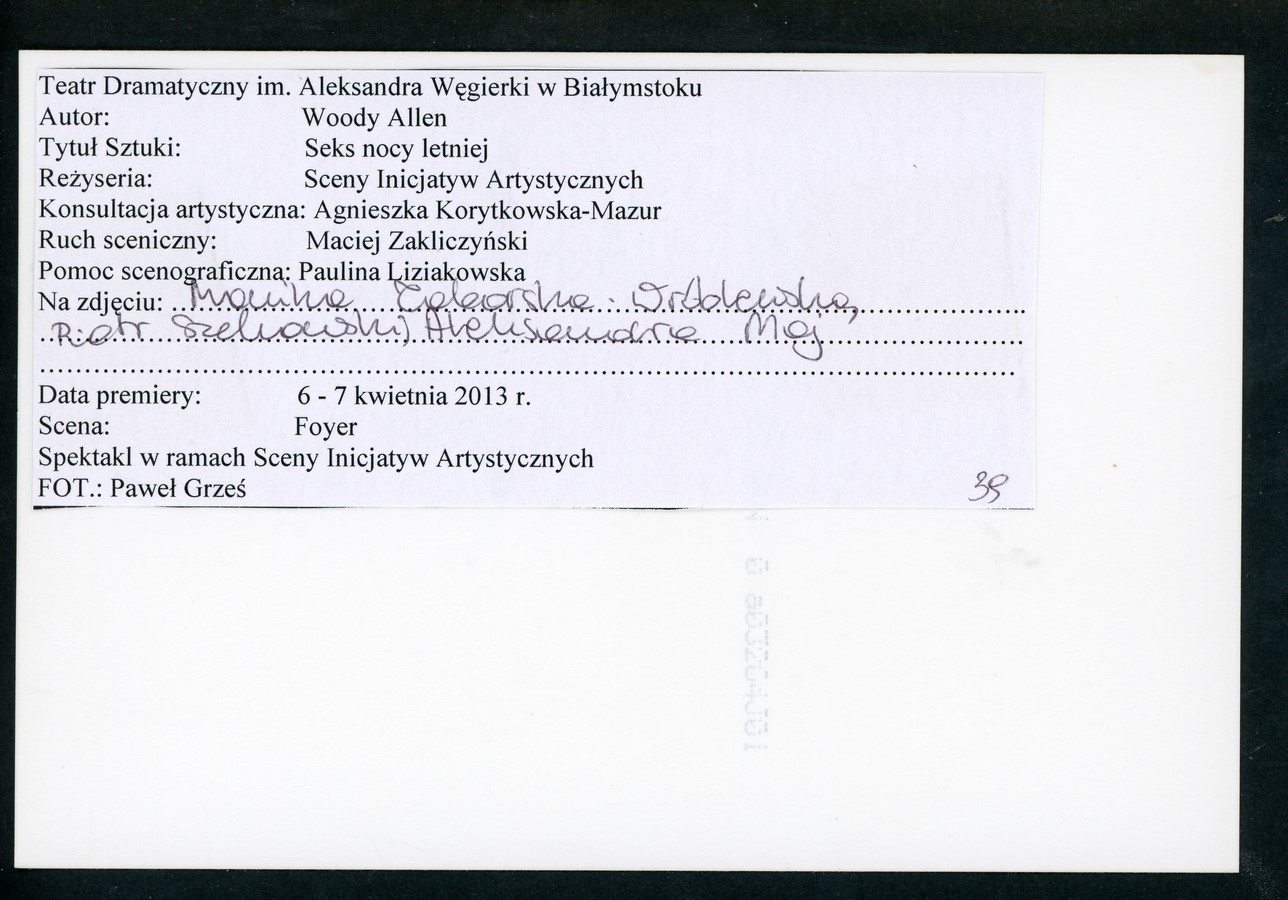 Teatr Dramatyczny im. Aleksandra Węgierki w Białymstoku
Autor: Woody Allen
Tytuł Sztuki: Seks nocy letniej
Reżyseria: Sceny Inicjatyw Artystycznych
Konsultacja artystyczna: Agnieszka Korytkowska-Mazur
Ruch sceniczny: Maciej Zakliczyński
Pomoc scenograficzna: Paulina Liziakowska
Na zdjęciu: Monika Wróblewska,
Piotr Szekowski, Aleksandra Maj
Data premiery: 6 - 7 kwietnia 2013 r.
Scena: Foyer
Spektakl w ramach Sceny Inicjatyw Artystycznych
FOT.: Paweł Grześ
39